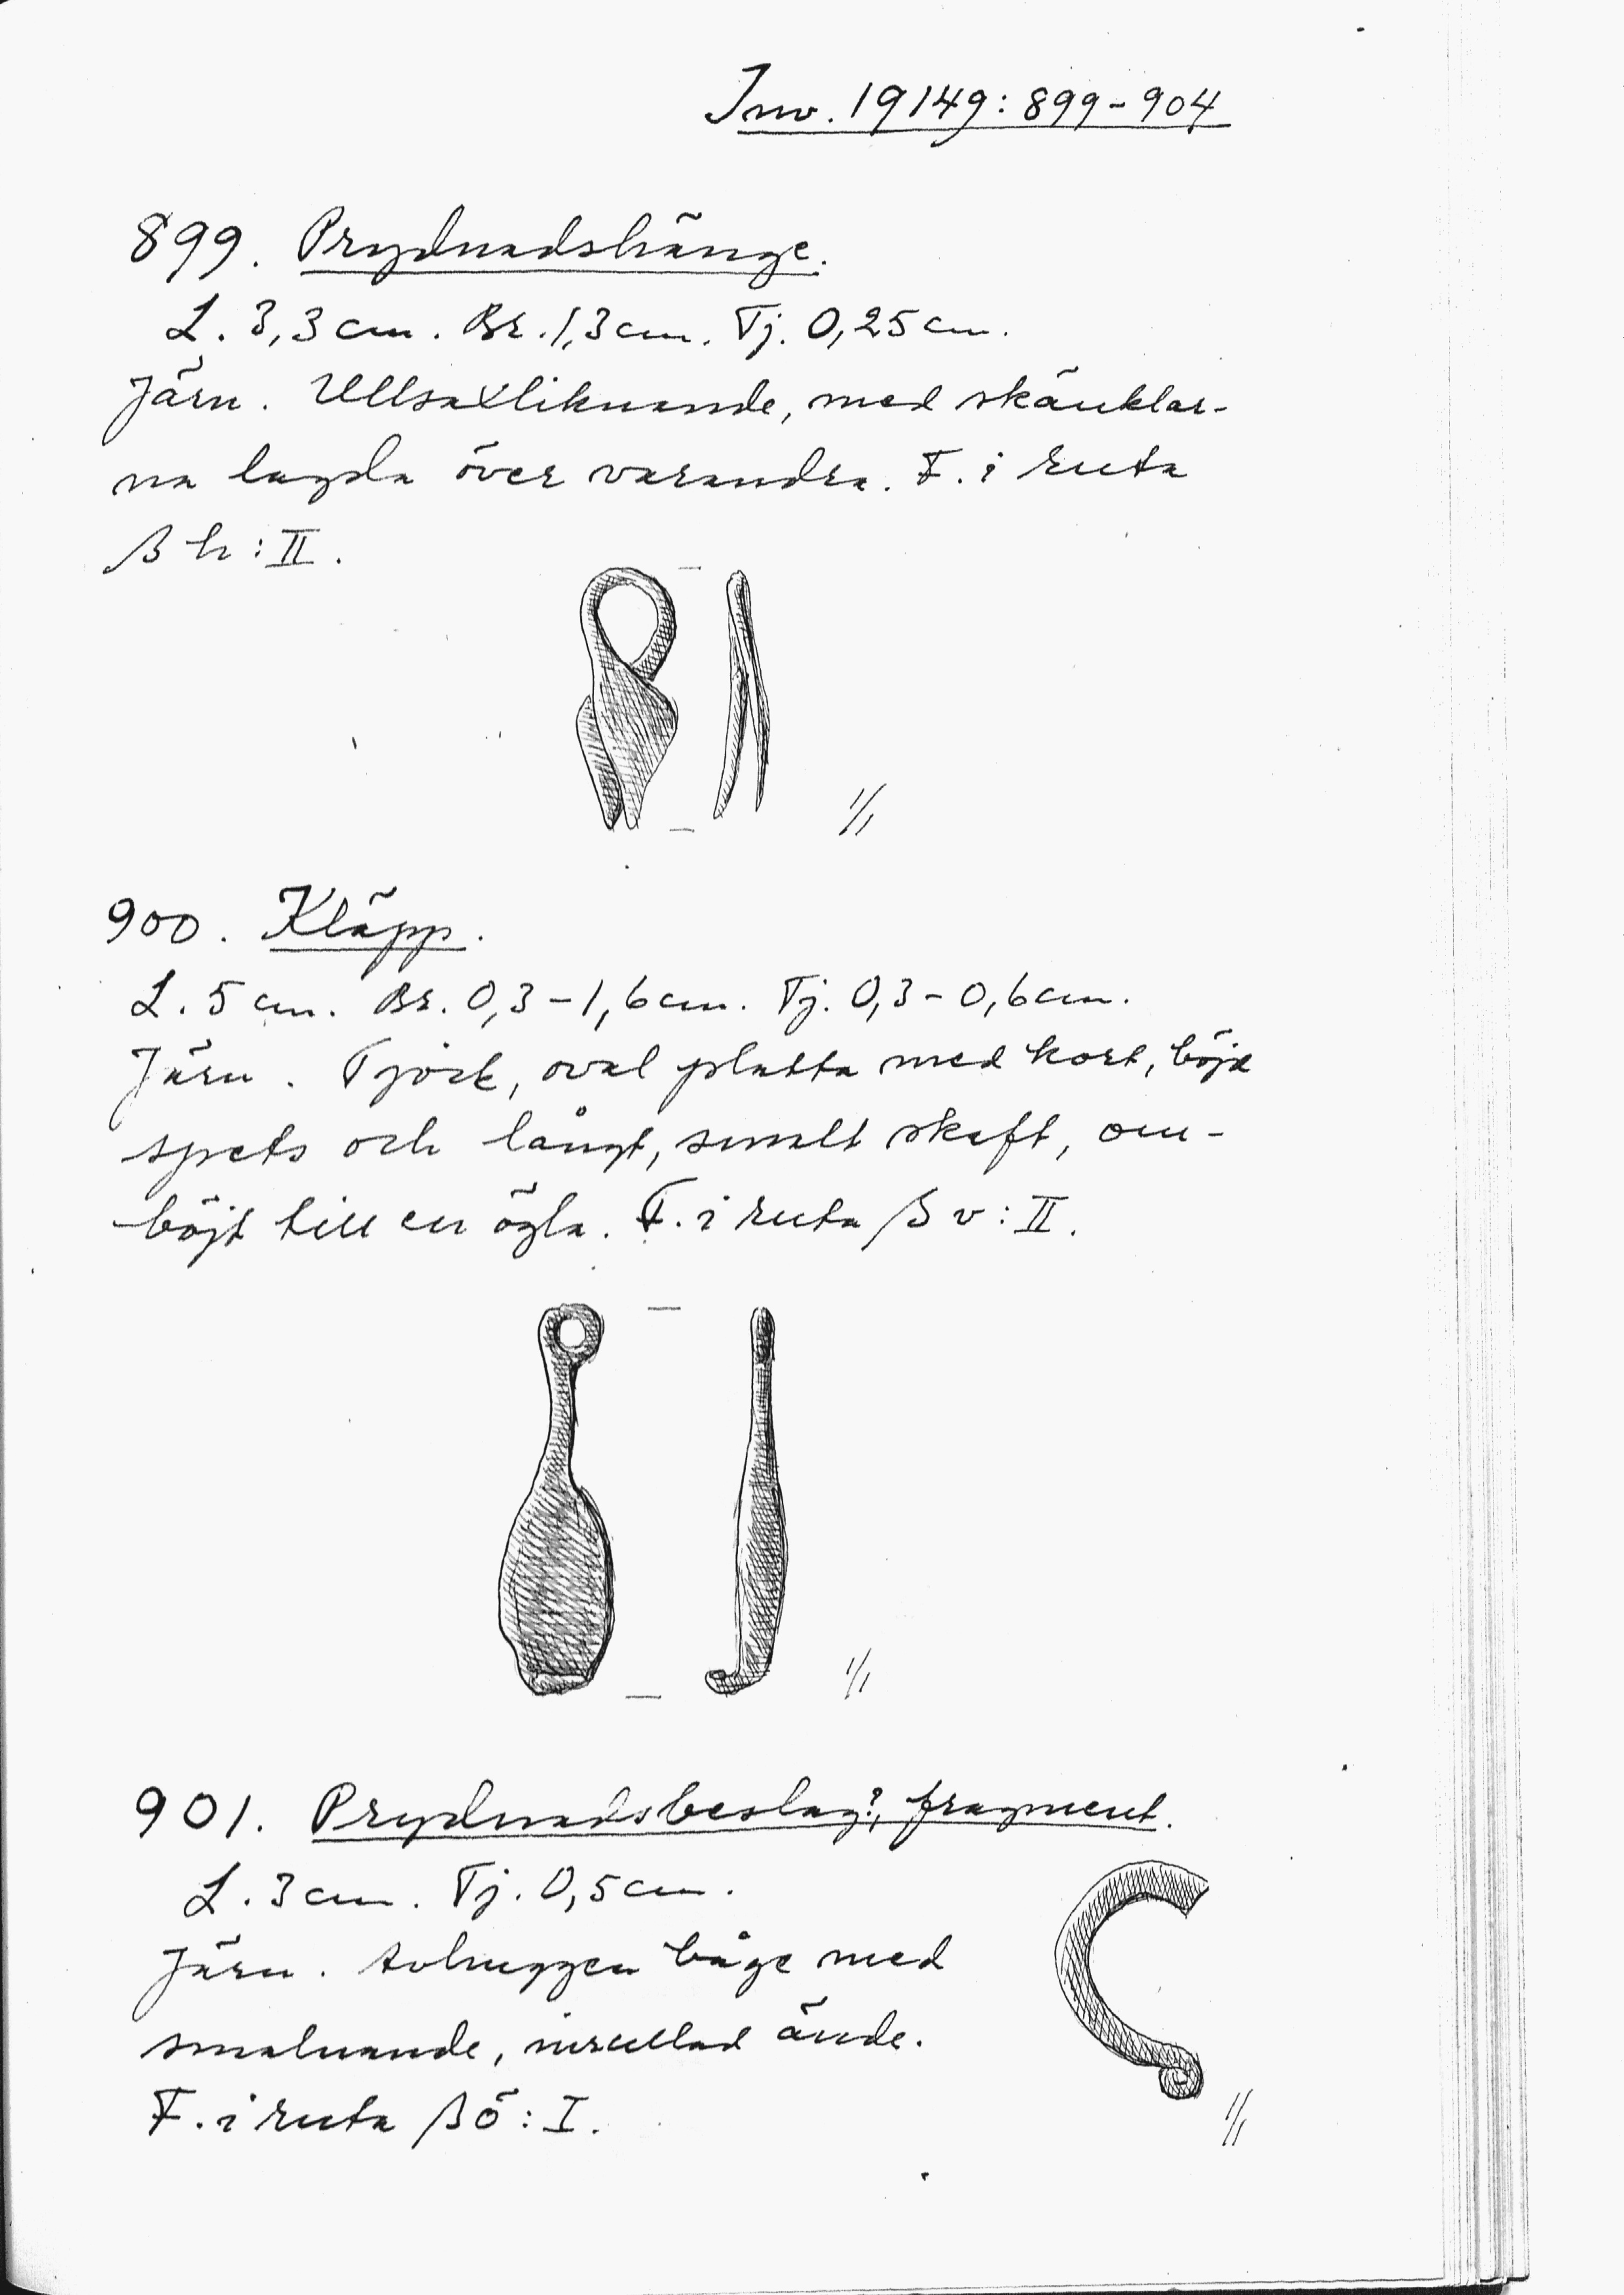 Inv. 19149:899-904
899. Prydnadshänge.
L. 3,3 cm. Br. 1,3 cm. Tj. 0,25 cm.
Järn. Ullsaxliknande, med skänklar-
na lagda över varandra. F. i ruta
β h: II.
1/1
900. Kläpp.
L. 5 cm. Br. 0,3-1,6 cm. Tj. 0,3-0,6 cm.
Järn. Tjock, oval platta med kort, böjd
spets och långt, smalt skaft, om-
böjt till en ögla. F. i ruta β v: II.
1/1
901. Prydnadsbeslag?, fragment.
L. 3 cm. Tj. 0,5 cm.
Järn. Avhuggen båge med
smalnande, inrullad ände.
F. i ruta β ö: I.
1/1